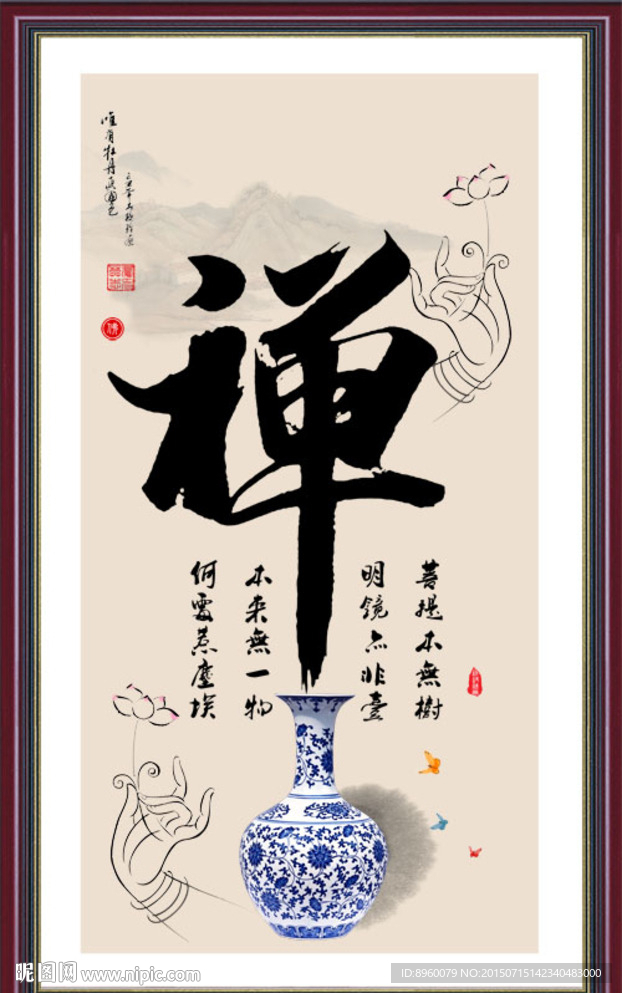 唯有牡丹真國色
佛
禅
菩提本無樹
明鏡亦非臺
本来無一物
何處惹塵埃
昵图网 www.nipic.com
ID:8960079 NO:20150715142340483000